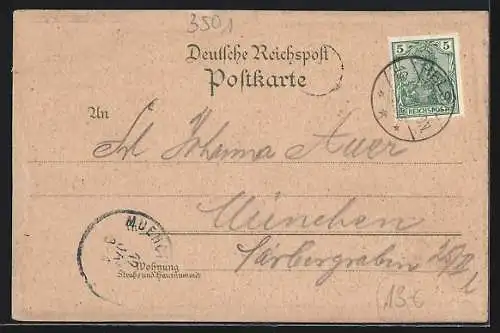 3501
Deutsche Reichspost
Postkarte
5 5
REICHSPOST
An
Frl Johanna Auer
München
Färbergraben 28/II
MUENCH
Wohnung
Straße und Hausnummer
13€